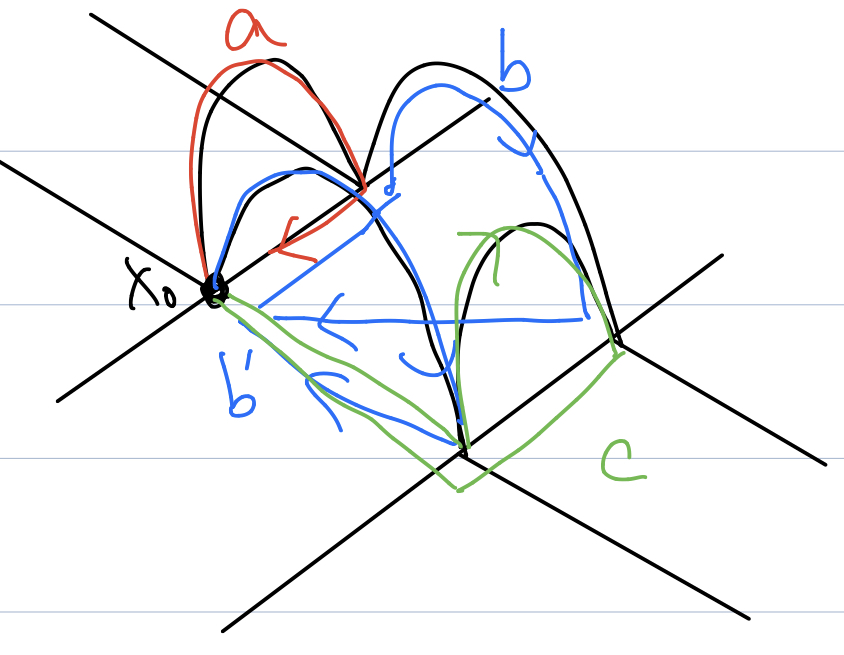 a
b
x₀
b'
c